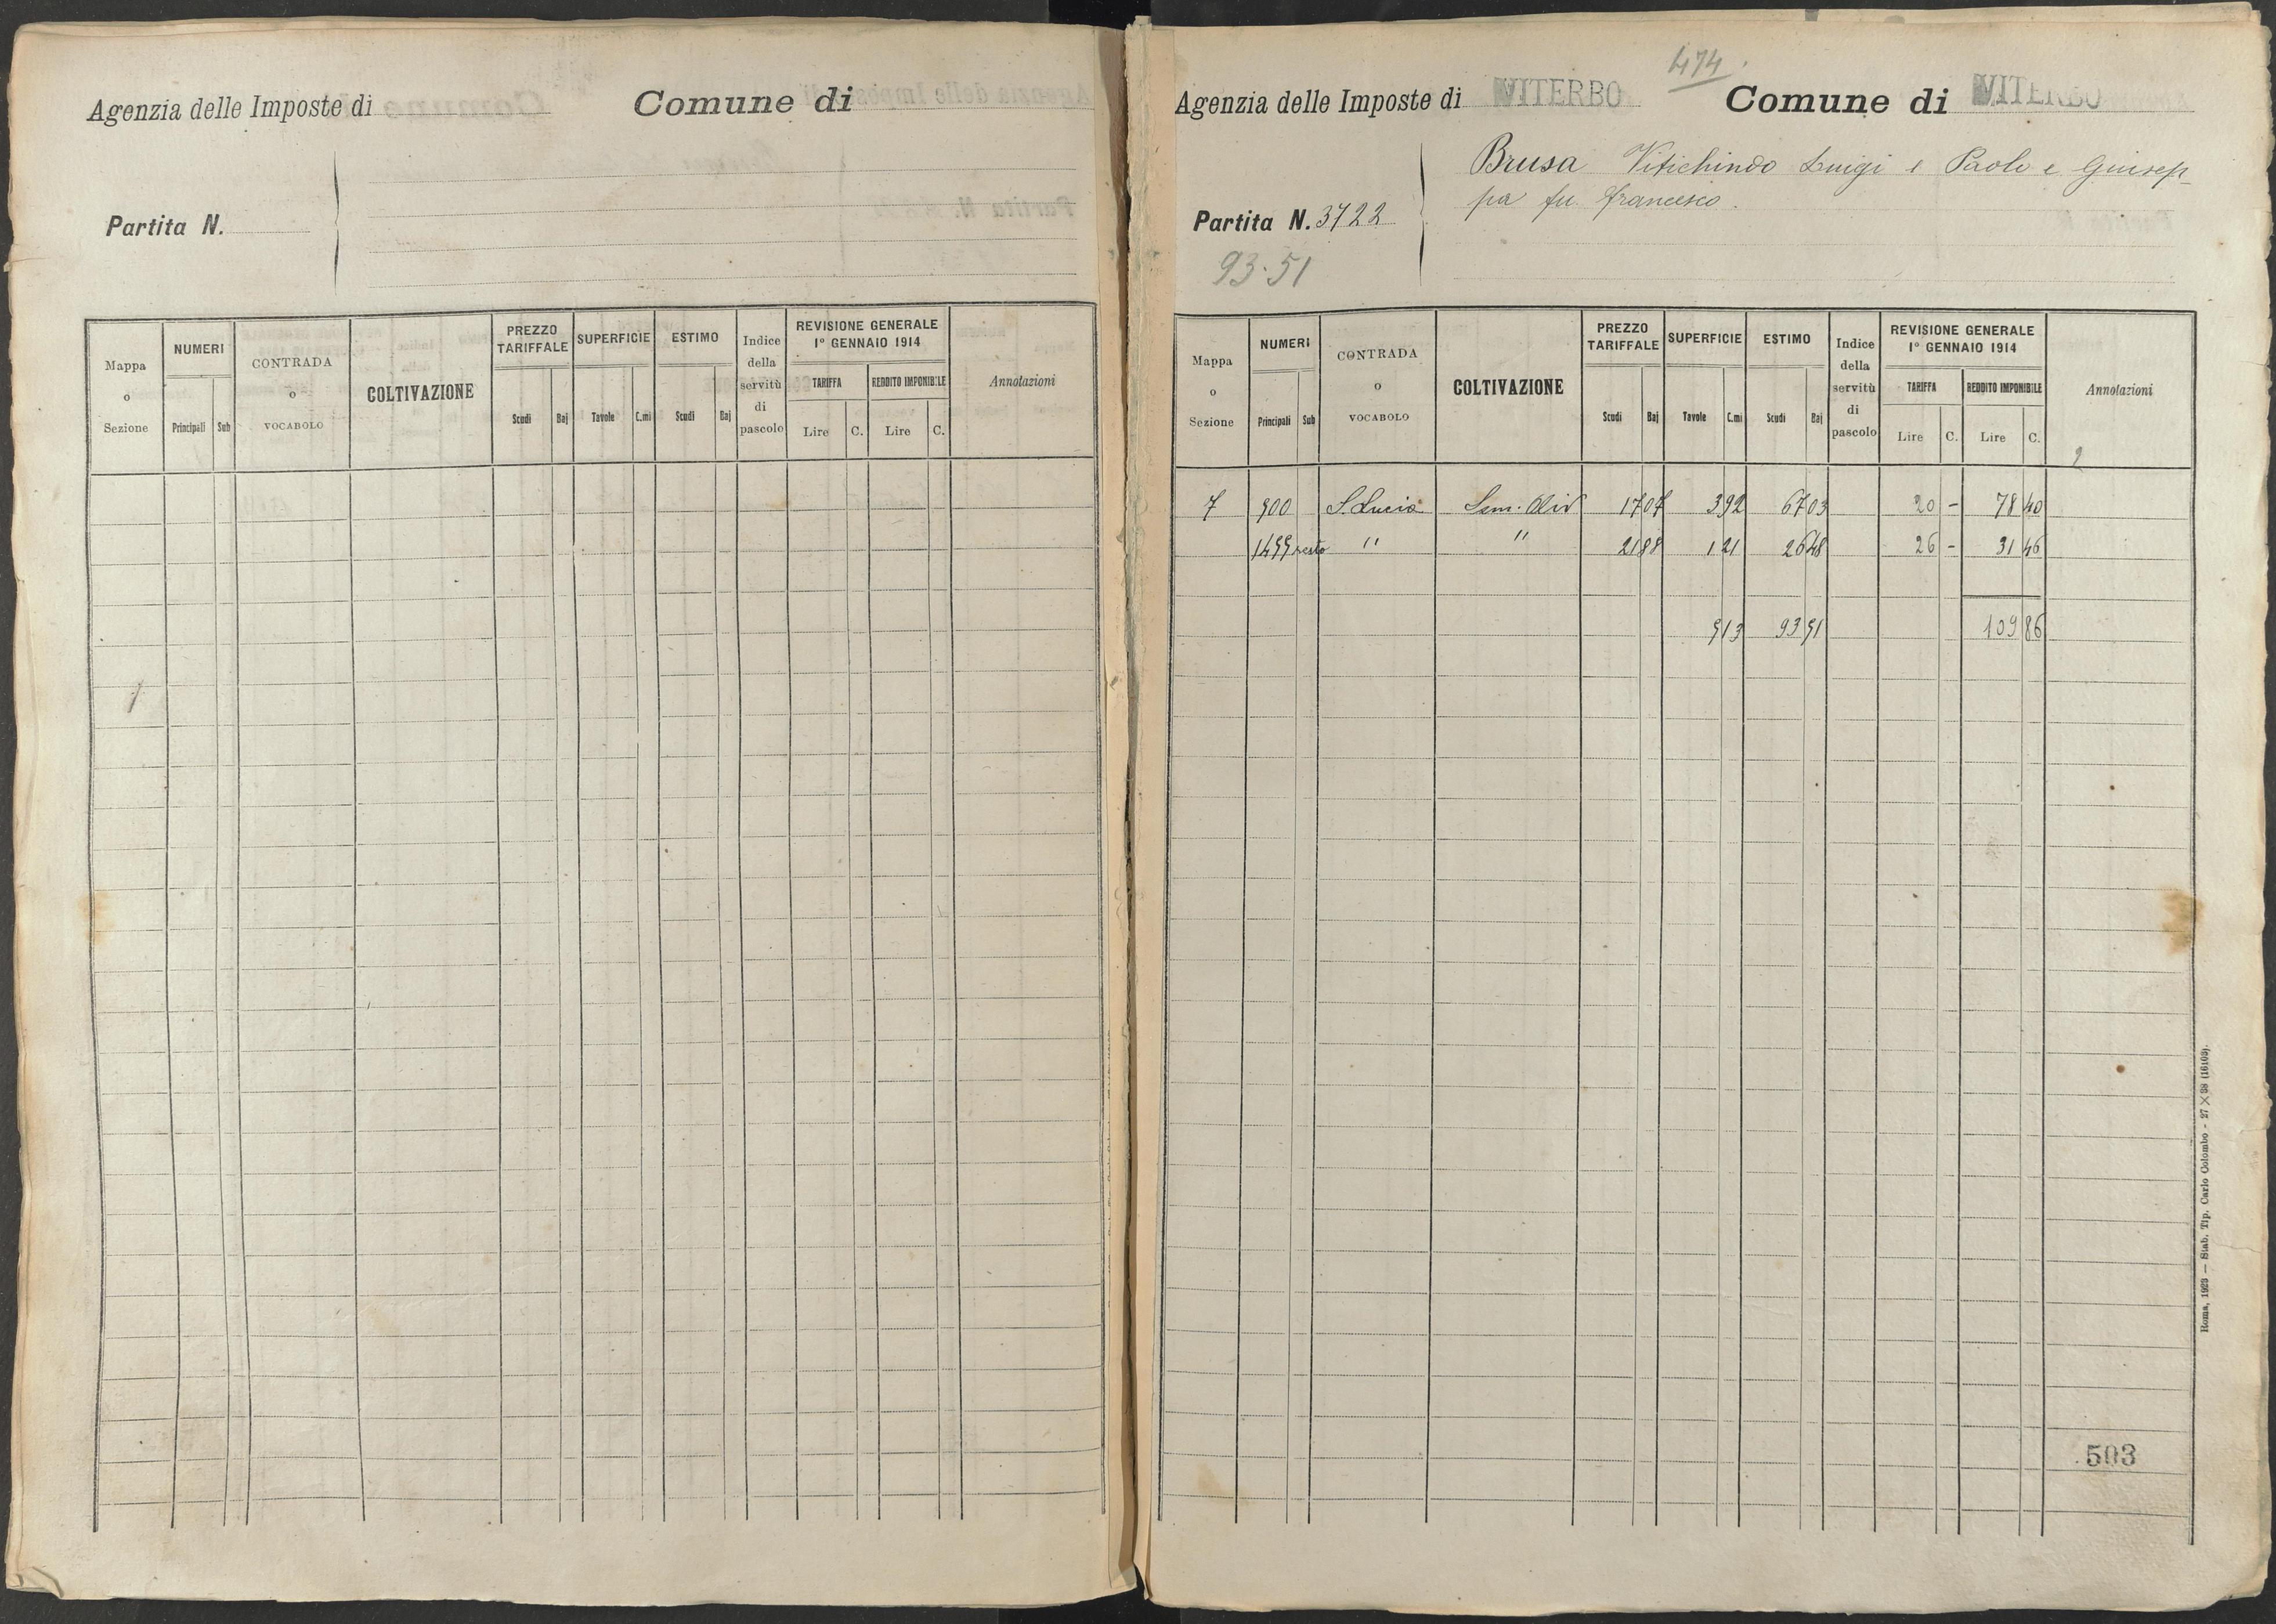 Agenzia delle Imposte di
Comune di
Partita N.
Mappa o Sezione
NUMERI
Principali Sub
CONTRADA o VOCABOLO
COLTIVAZIONE
PREZZO TARIFFALE
Scudi Baj
SUPERFICIE
Tavole C.mi
ESTIMO
Scudi Baj
Indice della servitù di pascolo
REVISIONE GENERALE
1° GENNAIO 1914
TARIFFA REDDITO IMPONIBILE
Lire C. Lire C.
Annotazioni
474
Agenzia delle Imposte di VITERBO Comune di VITERBO
Brusa Vitichindo Luigi e Paolo e Giusep-
pa fu Francesco.
Partita N. 3722
93.51
Mappa o Sezione
NUMERI
Principali Sub
CONTRADA o VOCABOLO
COLTIVAZIONE
PREZZO TARIFFALE
Scudi Baj
SUPERFICIE
Tavole C.mi
ESTIMO
Scudi Baj
Indice della servitù di pascolo
REVISIONE GENERALE
1° GENNAIO 1914
TARIFFA REDDITO IMPONIBILE
Lire C. Lire C.
Annotazioni
2
7 500 S. Lucia Sem. Oliv 17 07 3 92 67 03 20 - 78 40
1455 resto " " 21 88 1 21 26 48 26 - 31 46
5 13 93 51 109 86
503
Roma, 1923 — Stab. Tip. Carlo Colombo - 27 X 38 (16103).